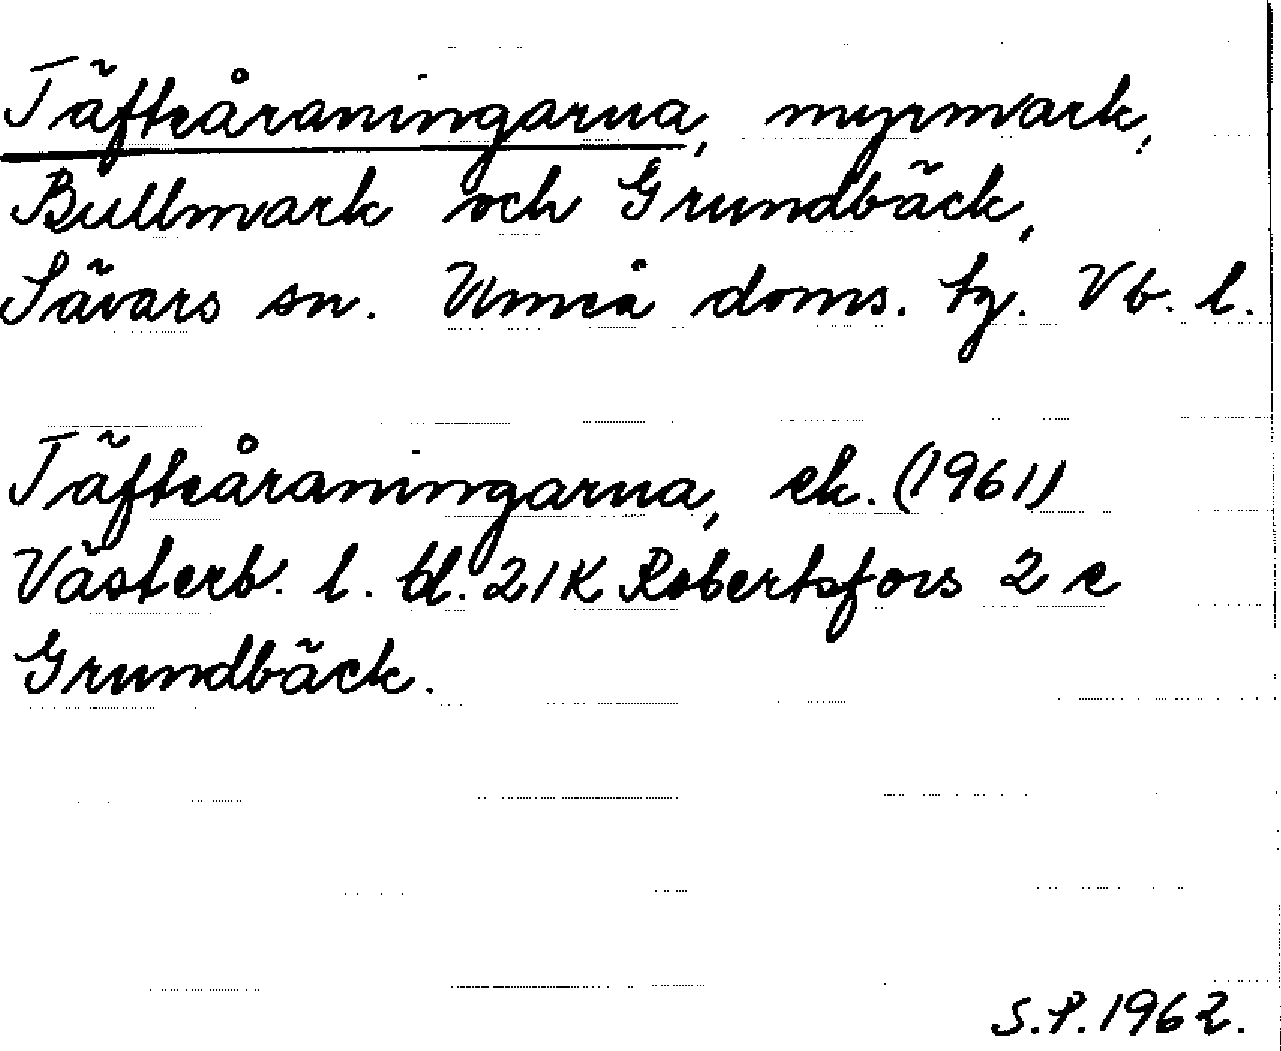 Täfteåraningarna, myrmark,
Bullmark och Grundbäck,
Sävars sn. Umeå doms. tg. Vb. l.
Täfteåraningarna, ek. (1961)
Västerb. l. bl. 21K Robertsfors 2 e
Grundbäck.
S.P. 1962.